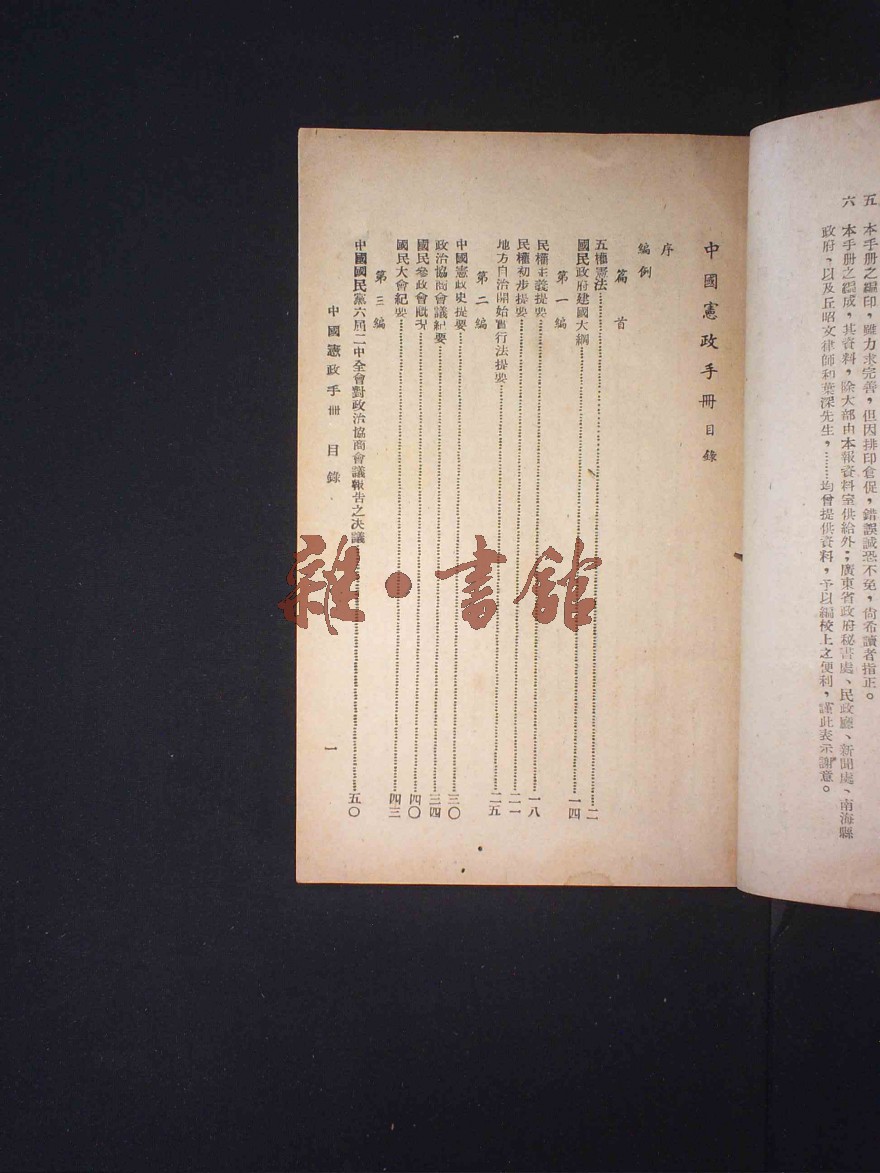 五　本手册之編印，雖力求完善，但因排印倉促，錯誤誠恐不免，尙希讀者指正。
六　本手册之編成，其資料，除大部由本報資料室供給外；廣東省政府秘書處、民政廳、新聞處、南海縣
政府，以及丘昭文律師和葉深先生，……均曾提供資料，予以編校上之便利，謹此表示謝意。
中國憲政手冊目錄
序
編例
篇首
五權憲法……二
國民政府建國大綱……一四
第一編
民權主義提要……一八
民權初步提要……二一
地方自治開始實行法提要……二五
第二編
中國憲政史提要……三〇
政治協商會議紀要……三四
國民參政會概況……四〇
國民大會紀要……四三
第三編
中國國民黨六屆二中全會對政治協商會議報告之決議……五〇
中國憲政手冊　目錄
一
雜·書館